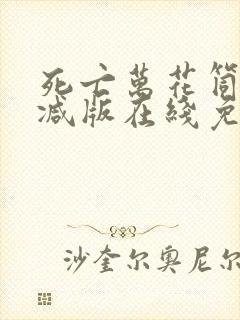 死亡萬花筒
减版在綫免
沙奎尔奥尼尔